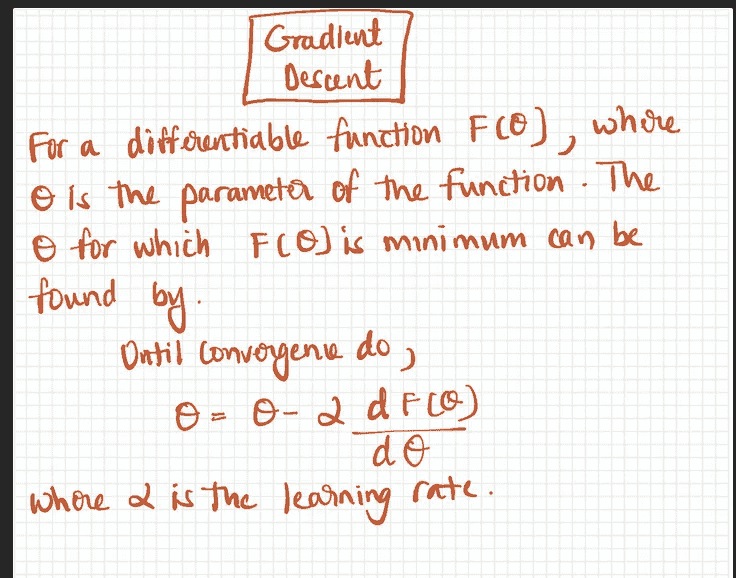 Gradient
Descent
For a differentiable function F(θ), where
θ is the parameter of the function. The
θ for which F(θ) is minimum can be
found by.
Until Convergence do,
θ = θ - α d F(θ)
d θ
where α is the learning rate.